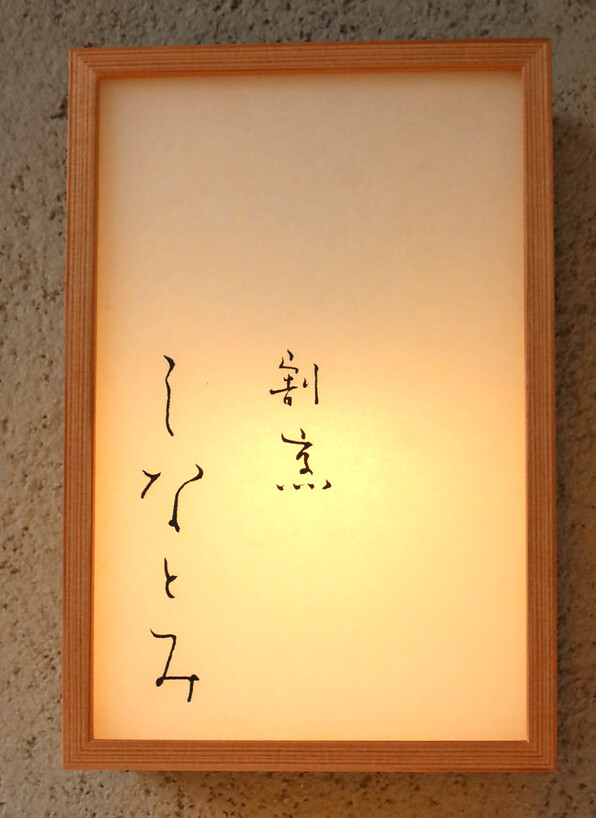 割烹
しなとみ